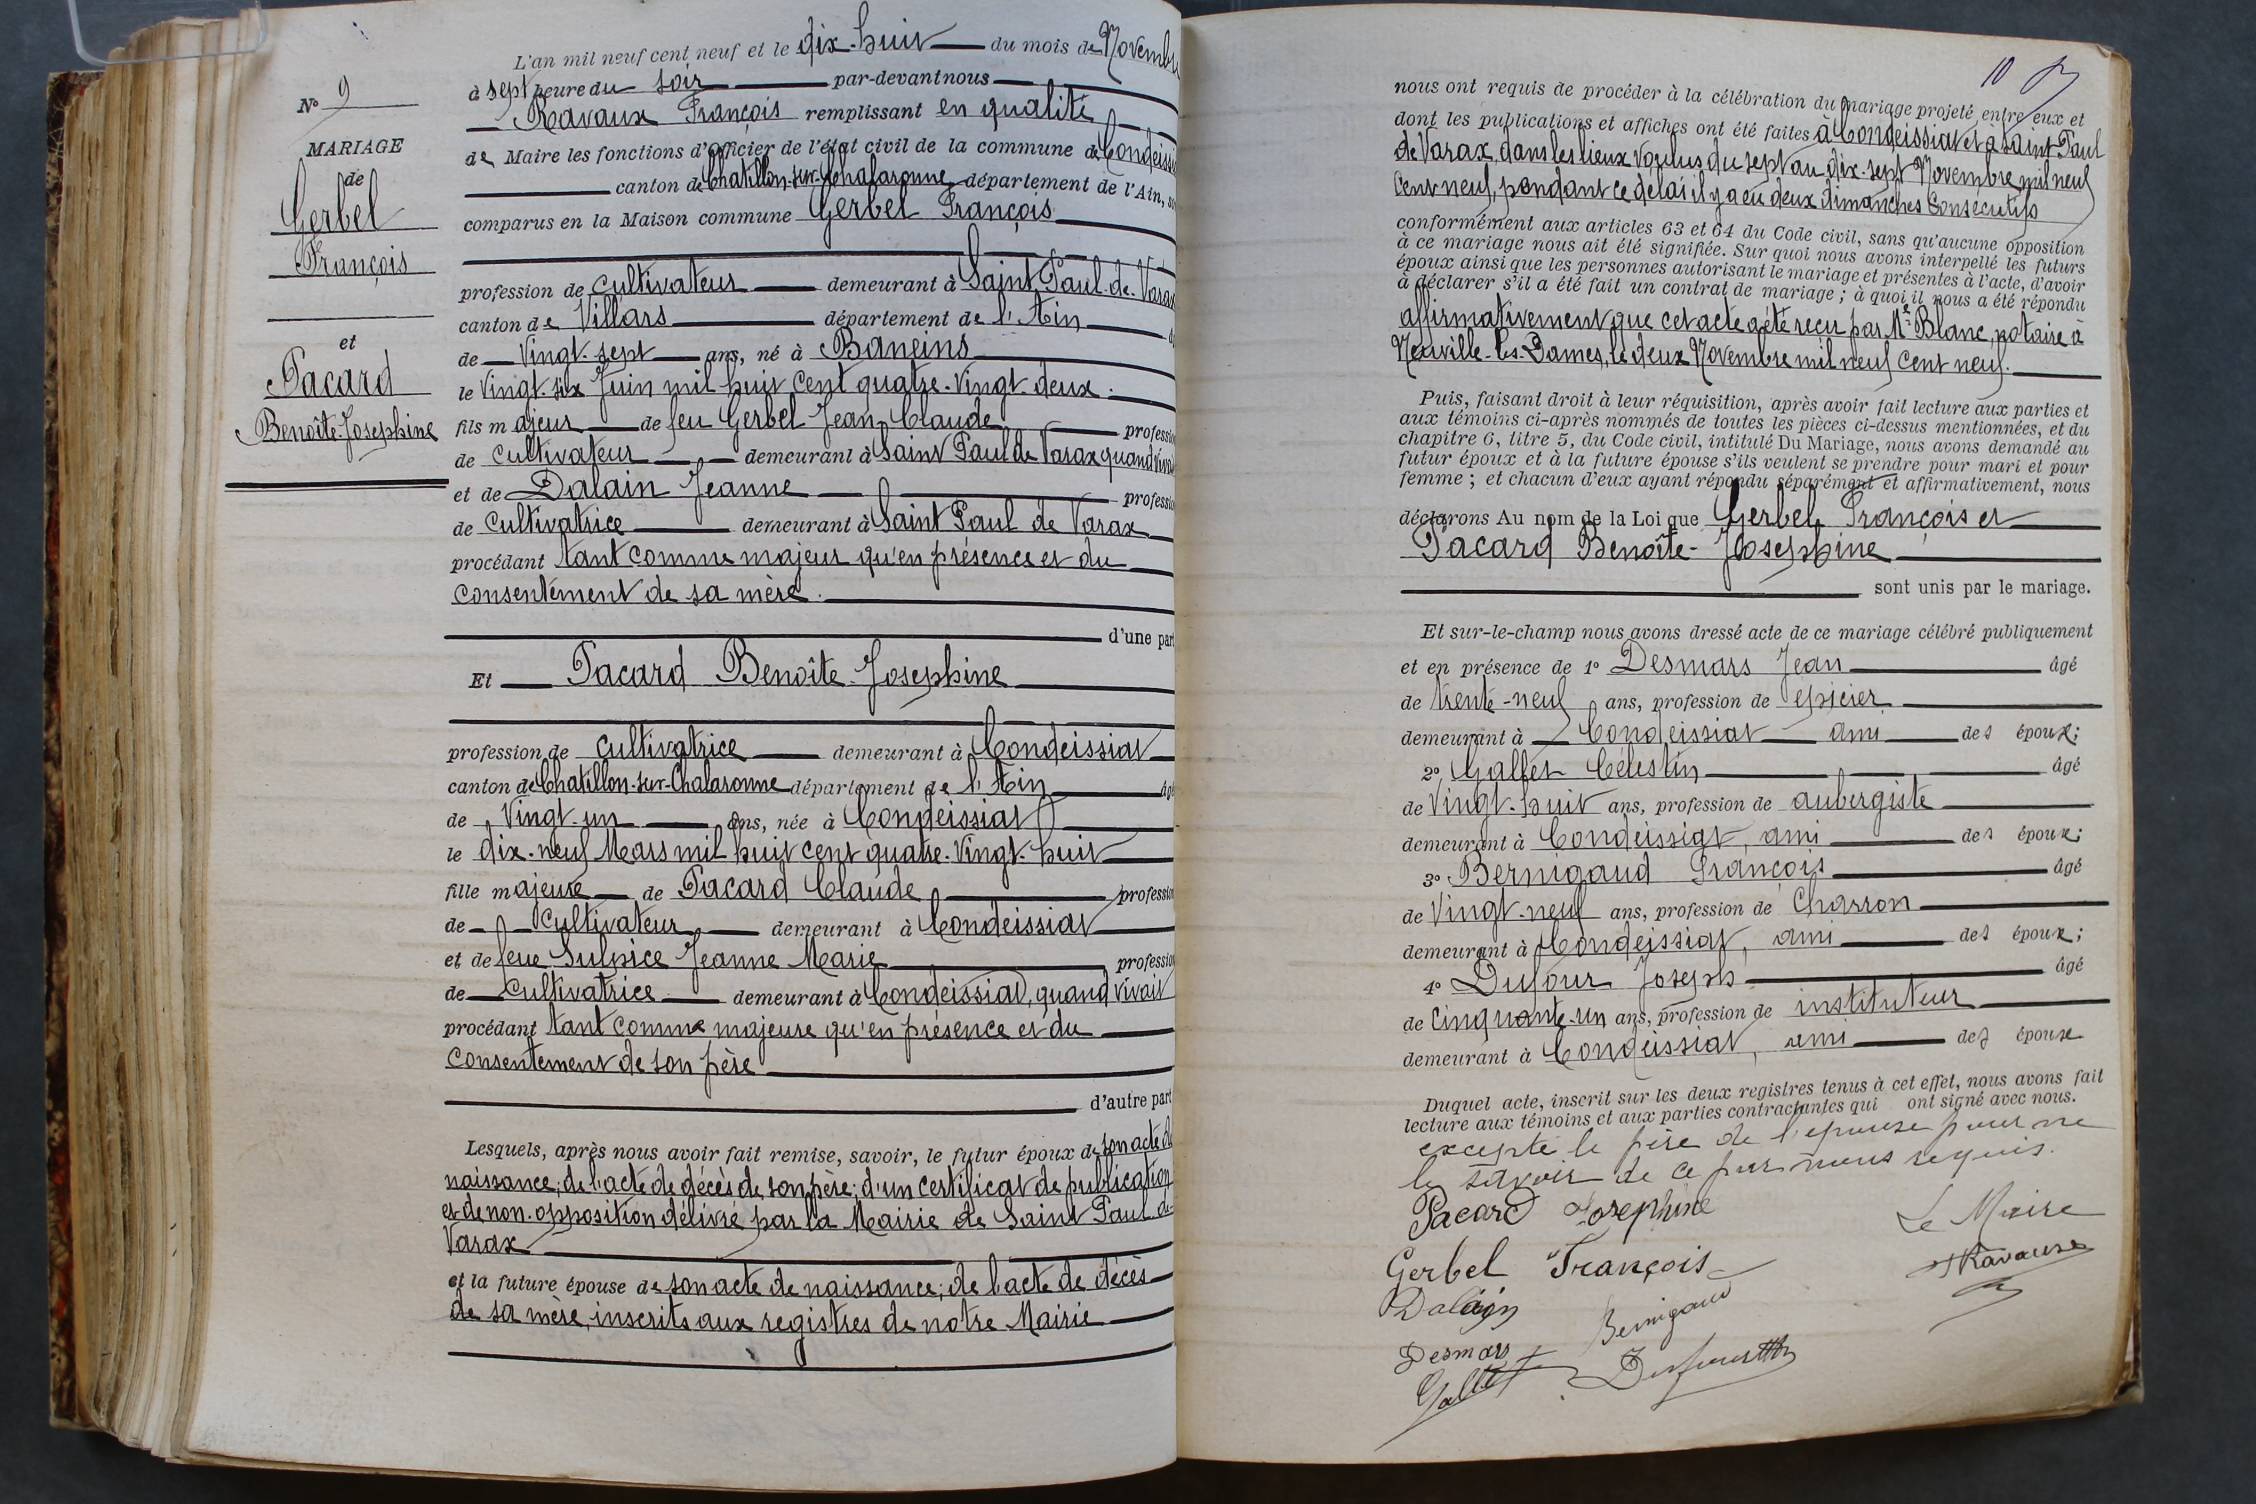 N° 9
MARIAGE
de
Gerbel
François
et
Pacard
Benoîte-Josephine
L'an mil neuf cent neuf et le dix-huit du mois de Novembre
à sept heure du soir par-devant nous
Ravaux François remplissant en qualité
de Maire les fonctions d'Officier de l'état civil de la commune de Condeissiat
canton de Chatillon-sur-Chalaronne département de l'Ain, so
comparus en la Maison commune Gerbel François
profession de cultivateur demeurant à Saint Paul-de-Varax
canton de Villars département de l'Ain
de Vingt-sept ans, né à Baneins
le Vingt-six Juin mil huit cent quatre-vingt-deux.
fils majeur de feu Gerbel Jean-Claude profession
de cultivateur demeurant à Saint Paul de Varax quand vivait
et de Dalain Jeanne profession
de cultivatrice demeurant à Saint Paul de Varax
procédant tant comme majeur qu'en présence et du
consentement de sa mère.
d'une part
Et Pacard Benoîte-Josephine
profession de cultivatrice demeurant à Condeissiat
canton de Chatillon-sur-Chalaronne département de l'Ain âgé
de Vingt-un ans, née à Condeissiat
le dix-neuf Mars mil huit cent quatre-vingt-huit
fille majeure de Pacard Claude profession
de cultivateur demeurant à Condeissiat
et de feue Sulpice Jeanne Marie profession
de Cultivatrice demeurant à Condeissiat, quand vivait
procédant tant comme majeure qu'en présence et du
consentement de son père
d'autre part
Lesquels, après nous avoir fait remise, savoir, le futur époux de son acte de
naissance; de l'acte de décès de son père; d'un certificat de publication
et de non-opposition délivré par la Mairie de Saint Paul de
Varax
et la future épouse de son acte de naissance; de l'acte de décès
de sa mère, inscrits aux registres de notre Mairie
10
nous ont requis de procéder à la célébration du mariage projeté entre eux et
dont les publications et affiches ont été faites à Condeissiat et à Saint Paul
de Varax, dans les lieux voulus du sept au dix-sept Novembre mil neuf
cent neuf, pendant ce délai il y a eu deux dimanches consécutifs
conformément aux articles 63 et 64 du Code civil, sans qu'aucune opposition
à ce mariage nous ait été signifiée. Sur quoi nous avons interpellé les futurs
époux ainsi que les personnes autorisant le mariage et présentes à l'acte, d'avoir
à déclarer s'il a été fait un contrat de mariage; à quoi il nous a été répondu
affirmativement que cet acte a été reçu par Me Blanc, notaire à
Neuville-les-Dames, le deux Novembre mil neuf cent neuf.
Puis, faisant droit à leur réquisition, après avoir fait lecture aux parties et
aux témoins ci-après nommés de toutes les pièces ci-dessus mentionnées, et du
chapitre 6, litre 5, du Code civil, intitulé Du Mariage, nous avons demandé au
futur époux et à la future épouse s'ils veulent se prendre pour mari et pour
femme; et chacun d'eux ayant répondu séparément et affirmativement, nous
déclarons Au nom de la Loi que Gerbel François et
Pacard Benoîte-Josephine
sont unis par le mariage.
Et sur-le-champ nous avons dressé acte de ce mariage célébré publiquement
et en présence de 1° Desmars Jean âgé
de trente-neuf ans, profession de épicier
demeurant à Condeissiat ami des époux;
2° Gallet Célestin âgé
de Vingt-huit ans, profession de aubergiste
demeurant à Condeissiat, ami des époux;
3° Bernigaud François âgé
de Vingt-neuf ans, profession de Charron
demeurant à Condeissiat, ami des époux;
4° Dufour Joseph âgé
de Cinquante-un ans, profession de instituteur
demeurant à Condeissiat, ami des époux
Duquel acte, inscrit sur les deux registres tenus à cet effet, nous avons fait
lecture aux témoins et aux parties contractantes qui ont signé avec nous.
excepté le père de l'épouse pour ne
le savoir de ce par nous requis.
Pacard Josephine
Le Maire
Gerbel François
Ravaux
Dalain
Bernigaud
Desmars
Dufour
Gallet